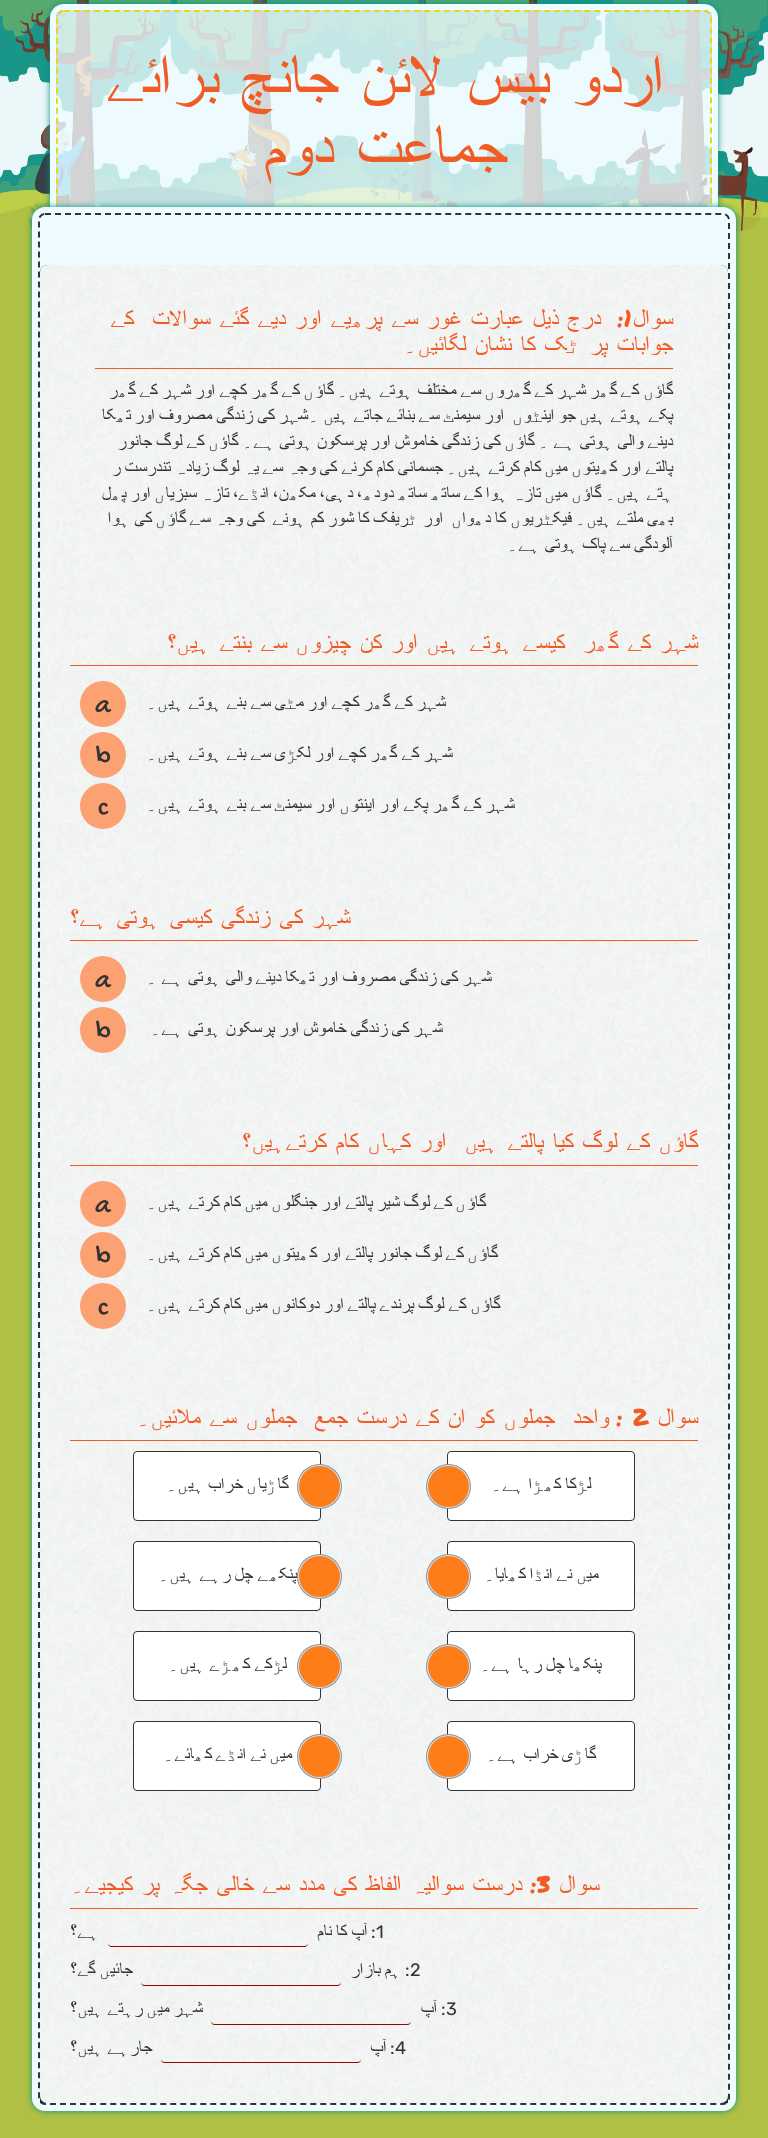 اردو بیس لائن جانچ برائے
جماعت دوم
سوال1: درج ذیل عبارت غور سے پرھیے اور دیے گئے سوالات کے
جوابات پر ٹک کا نشان لگائیں۔
گاؤں کے گھر شہر کے گھروں سے مختلف ہوتے ہیں۔ گاؤں کے گھر کچے اور شہر کے گھر
پکے ہوتے ہیں جو اینٹوں اور سیمنٹ سے بنائے جاتے ہیں ۔شہر کی زندگی مصروف اور تھکا
دینے والی ہوتی ہے ۔ گاؤں کی زندگی خاموش اور پرسکون ہوتی ہے۔ گاؤں کے لوگ جانور
پالتے اور کھیتوں میں کام کرتے ہیں۔ جسمانی کام کرنے کی وجہ سے یہ لوگ زیادہ تندرست ر
ہتے ہیں۔ گاؤں میں تازہ ہوا کے ساتھ ساتھ دودھ، دہی، مکھن، انڈے، تازہ سبزیاں اور پھل
بھی ملتے ہیں۔ فیکٹریوں کا دھواں اور ٹریفک کا شور کم ہونے کی وجہ سے گاؤں کی ہوا
آلودگی سے پاک ہوتی ہے۔
شہر کے گھر کیسے ہوتے ہیں اور کن چیزوں سے بنتے ہیں؟
a شہر کے گھر کچے اور مٹی سے بنے ہوتے ہیں۔
b شہر کے گھر کچے اور لکڑی سے بنے ہوتے ہیں۔
c شہر کے گھر پکے اور اینتوں اور سیمنٹ سے بنے ہوتے ہیں۔
شہر کی زندگی کیسی ہوتی ہے؟
a شہر کی زندگی مصروف اور تھکا دینے والی ہوتی ہے ۔
b شہر کی زندگی خاموش اور پرسکون ہوتی ہے۔
گاؤں کے لوگ کیا پالتے ہیں اور کہاں کام کرتےہیں؟
a گاؤں کے لوگ شیر پالتے اور جنگلوں میں کام کرتے ہیں۔
b گاؤں کے لوگ جانور پالتے اور کھیتوں میں کام کرتے ہیں۔
c گاؤں کے لوگ پرندے پالتے اور دوکانوں میں کام کرتے ہیں۔
سوال 2 : واحد جملوں کو ان کے درست جمع جملوں سے ملائیں۔
لڑکا کھڑا ہے۔
گاڑیاں خراب ہیں۔
میں نے انڈا کھایا۔
پنکھے چل رہے ہیں۔
پنکھا چل رہا ہے۔
لڑکے کھڑے ہیں۔
گاڑی خراب ہے۔
میں نے انڈے کھائے۔
سوال 3: درست سوالیہ الفاظ کی مدد سے خالی جگہ پر کیجیے۔
1: آپ کا نام ہے؟
2: ہم بازار جائیں گے؟
3: آپ شہر میں رہتے ہیں؟
4: آپ جارہے ہیں؟